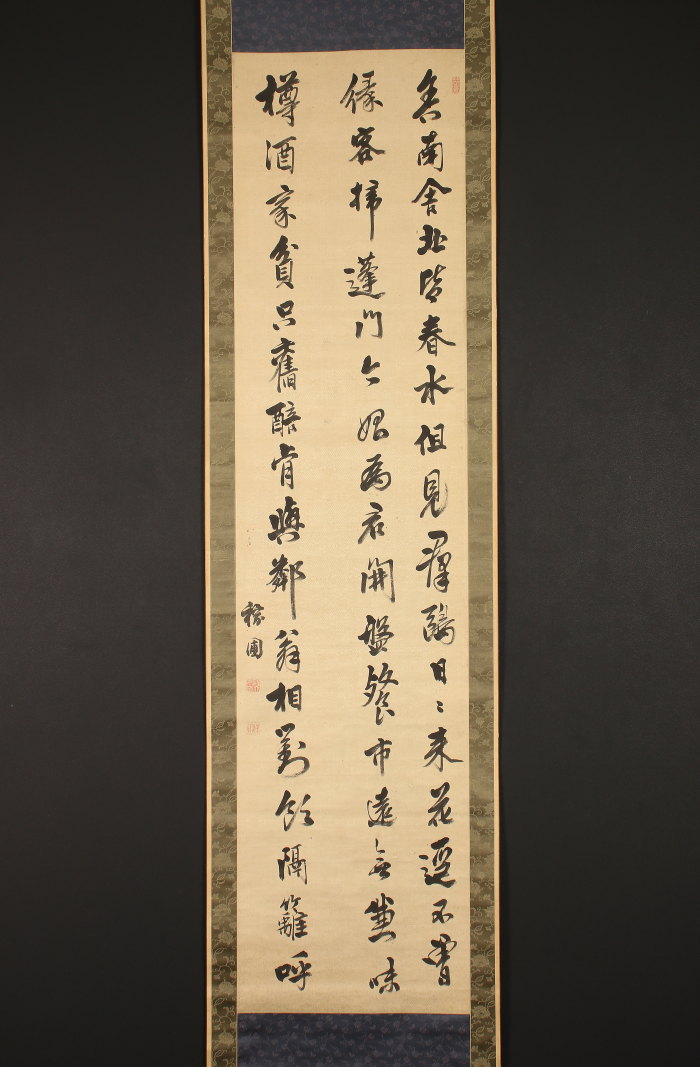 舍南舍北皆春水但見羣鷗日〻来花逕不曾
緣客掃蓬門今始為君開盤餐市遠無兼味
樽酒家貧只舊醅肯與鄰翁相對飲隔籬呼
稼圃